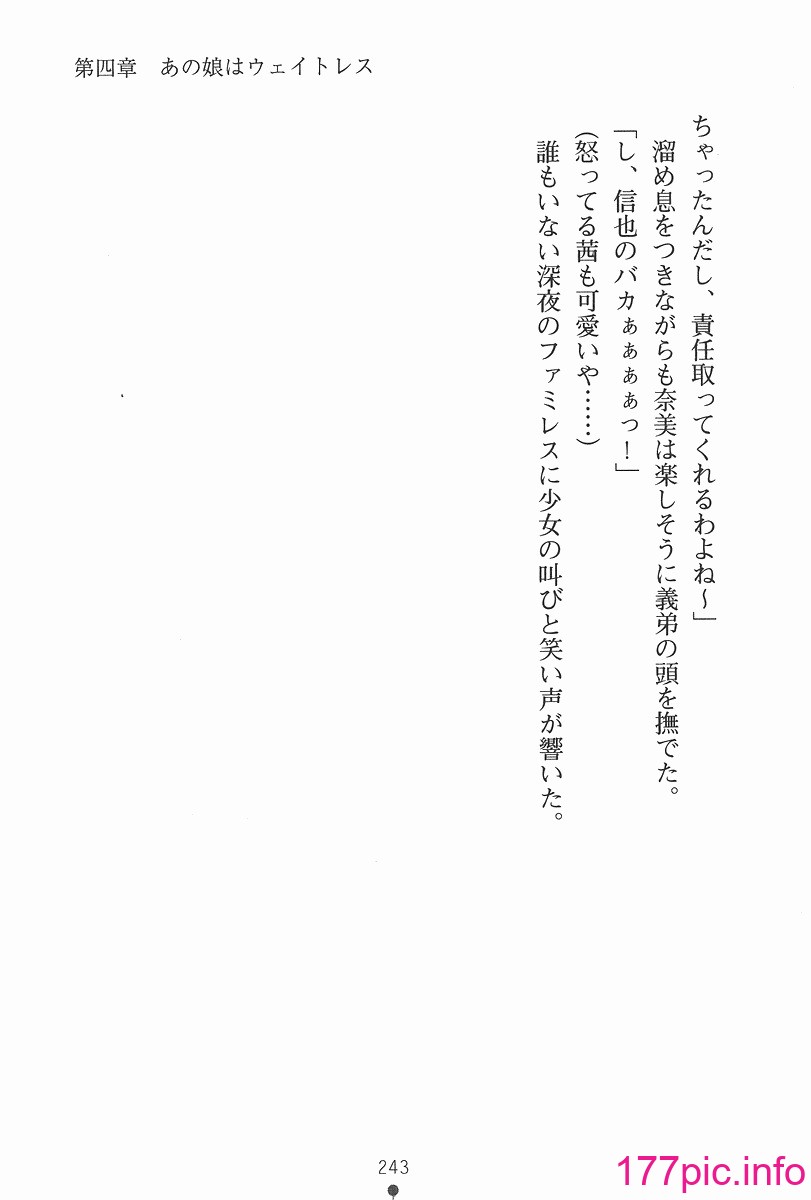 第四章　あの娘はウェイトレス
ちゃったんだし、責任取ってくれるわよね～」
　溜め息をつきながらも奈美は楽しそうに義弟の頭を撫でた。
「し、信也のバカぁぁぁぁっ！」
（怒ってる茜も可愛いや……）
　誰もいない深夜のファミレスに少女の叫びと笑い声が響いた。
243
177pic.info